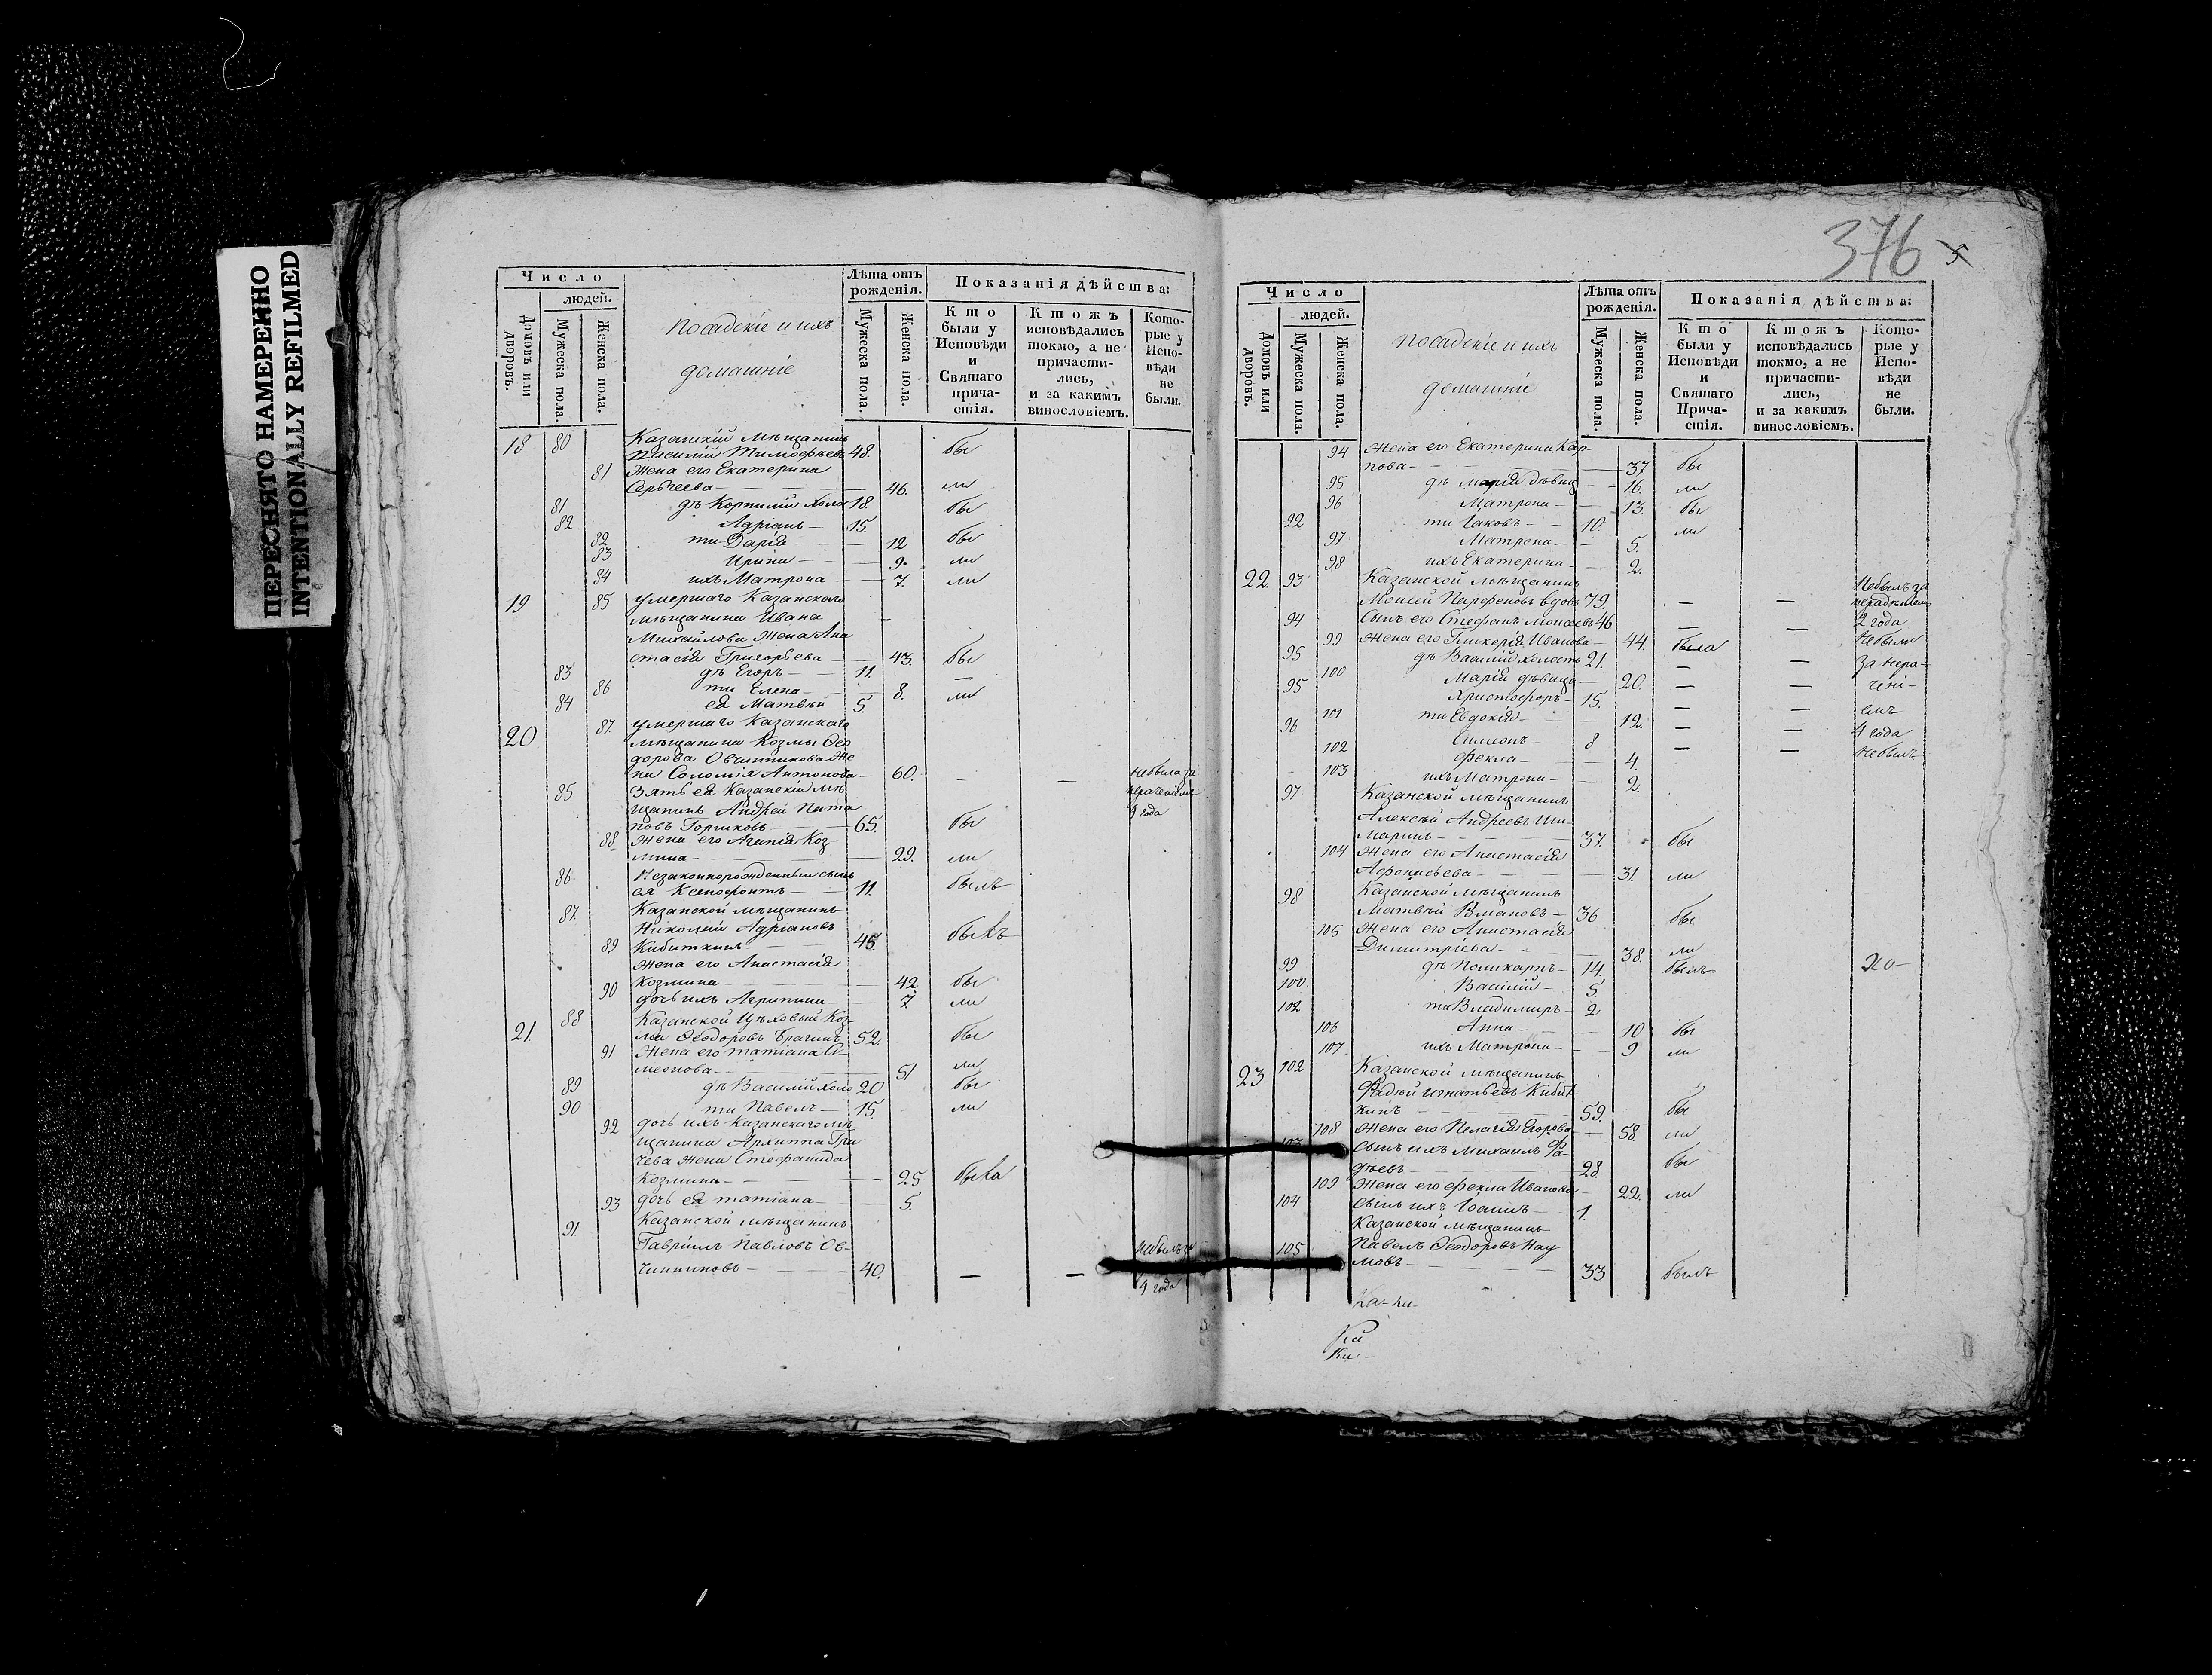 ПЕРЕСНЯТО НАМЕРЕННО
INTENTIONALLY REFILMED
376
5
Число
людей.
Домовъ или дворовъ.
Мужеска пола.
Женска пола.
посадскіе и ихъ
домашніе
Лѣта отъ рожденія.
Мужеска пола.
Женска пола.
Показанія дѣйства:
Кто были у Исповѣди и Святаго причастія.
Ктожъ исповѣдались токмо, а не причастились, и за какимъ винословіемъ.
Которые у Исповѣди не были.
18 80 Казанскій мѣщанинъ
Василій Тимофѣевъ 48. бы
81 Жена его Екатерина
Сергѣева 46. ли
81 дѣ Корнилій холос 18. бы
82 Адріанъ 15.
82 ти Дарія 12 бы
83 Ирина 9. ли
84 ихъ Матрона 7. ли
19 85 умершаго Казанскаго
мѣщанина Ивана
Михайлова жена Ана
стасія Григорьева 43. бы
83 дѣ Егоръ 11. —
86 ти Елена 8. ли
84 ея Матвѣй 5.
20 87. умершаго Казанскаго
мѣщанина Козмы Ѳео
дорова Овчинникова Же
на Соломія Антонова 60. — — небыла за
85 Зять ея Казанскій мѣ
щанинъ Андрей Пота
повъ Горшковъ 65. бы
88 Жена его Агапія Коз
мина 29. ли
86 Незаконнорожденный сынъ
ея Ксенофонтъ 11. былъ
87. Казанской мѣщанинъ
Николай Адріановъ
89 Кибиткинъ 45. былъ
Жена его Анастасія
Козмина 42 бы
90 дочь ихъ Агрипина 7. ли
21. 88 Казанской Цѣховый Коз
ма Ѳеодоровъ Брагинъ 52. бы
91 Жена его Татіана Си
меонова 51 ли
89 дѣ Василій холо 20 бы
90 ти Павелъ 15. ли
92 дочь ихъ Казанскаго мѣ
щанина Архиппа Гра
чева жена Стефанида
Козмина 25 была
93 дочь ея Татіана 5.
91. Казанской мѣщанинъ
Гавріилъ Павловъ Ов-
чинниковъ 40. — — 4 года
Число
людей.
Домовъ или дворовъ.
Мужеска пола.
Женска пола.
посадскіе и ихъ
домашніе
Лѣта отъ рожденія.
Мужеска пола.
Женска пола.
Показанія дѣйства:
Кто были у Исповѣди и Святаго Причастія.
Ктожъ исповѣдались токмо, а не причастились, и за какимъ винословіемъ.
Которые у Исповѣди не были.
94 Жена его Екатерина Кар-
пова 37. бы
95 дѣ Марія дѣвиц 16. ли
96 Матрона 13. бы
92 ти Іаковъ 10. ли
97 Матрона 5.
98 ихъ Екатерина 2.
22. 93 Казанской мѣщанинъ
Моисей Парфеновъ вдовъ 79. — — Небылъ за
94 Сынъ его Стефанъ Моисеевъ 46 — — 2 года
99 Жена его Гликерія Иванова 44. была Небыли
95 дѣ Василій холостъ 21. — — за нера-
100 Марія дѣвица 20. — — чені-
95 Христофоръ 15. — — емъ
101 ти Евдокія 12. — — 4 года
96 Симеонъ 8 — — Небылъ
102 Фекла 4.
103 ихъ Матрона 2.
97 Казанской мѣщанинъ
Алексѣй Андреевъ Ши-
маринъ 37. бы
104 Жена его Анастасія
Афонасьева 31. ли
98 Казанской мѣщанинъ
Матвѣй 36 бы
105 Жена его Анастасія
Димитріева 38. ли
99 дѣ Поликарпъ 14. былъ
100 Василій 5.
102 ти Владимиръ 2
106 Анна 10 бы
107 ихъ Матрона 9 ли
23 102 Казанской мѣщанинъ
Фадѣй Игнатьевъ Кибит
кинъ 59. бы
108 Жена его Пелагія Егорова 58. ли
103 Сынъ ихъ Михаилъ Фа-
дѣевъ 28. бы
109 Жена его Фекла Иванова 22. ли
104 Сынъ ихъ Іоаннъ 1.
Казанской мѣщанинъ
105 Павелъ Ѳеодоровъ Нау
мовъ 33. былъ